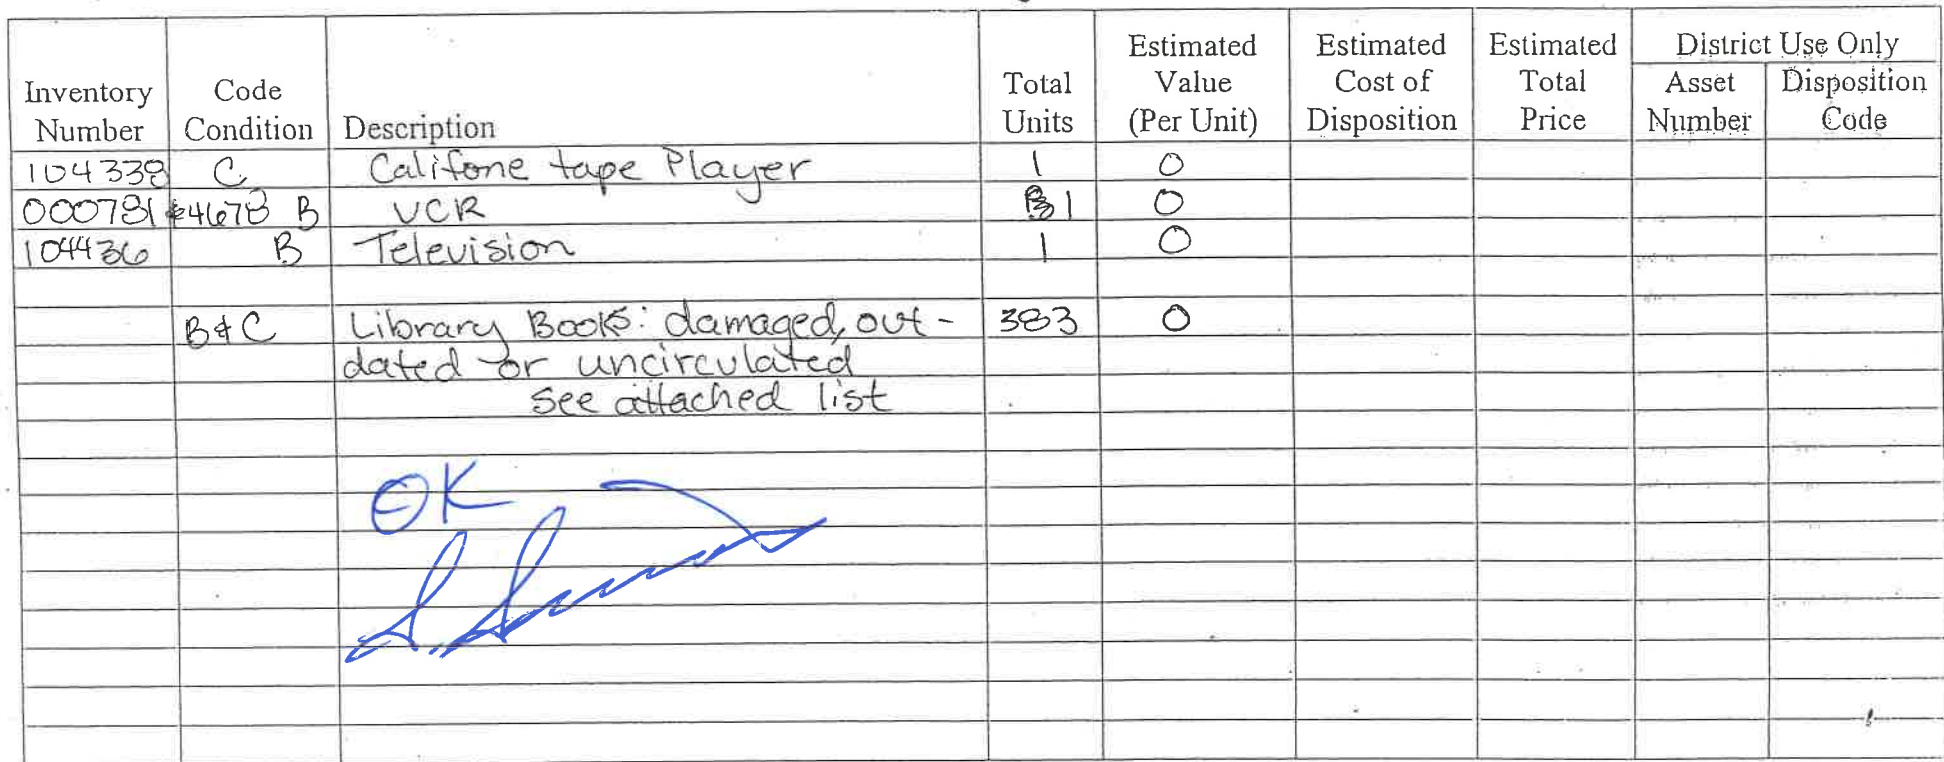 Inventory Number | Code Condition | Description | Total Units | Estimated Value (Per Unit) | Estimated Cost of Disposition | Estimated Total Price | District Use Only | Asset Number | Disposition Code
104338 C Califone tape Player 1 0
000781 B VCR 1 0
104436 B Television 1 0
B & C Library Books: damaged, out- 383 0
dated or uncirculated
see attached list
OK